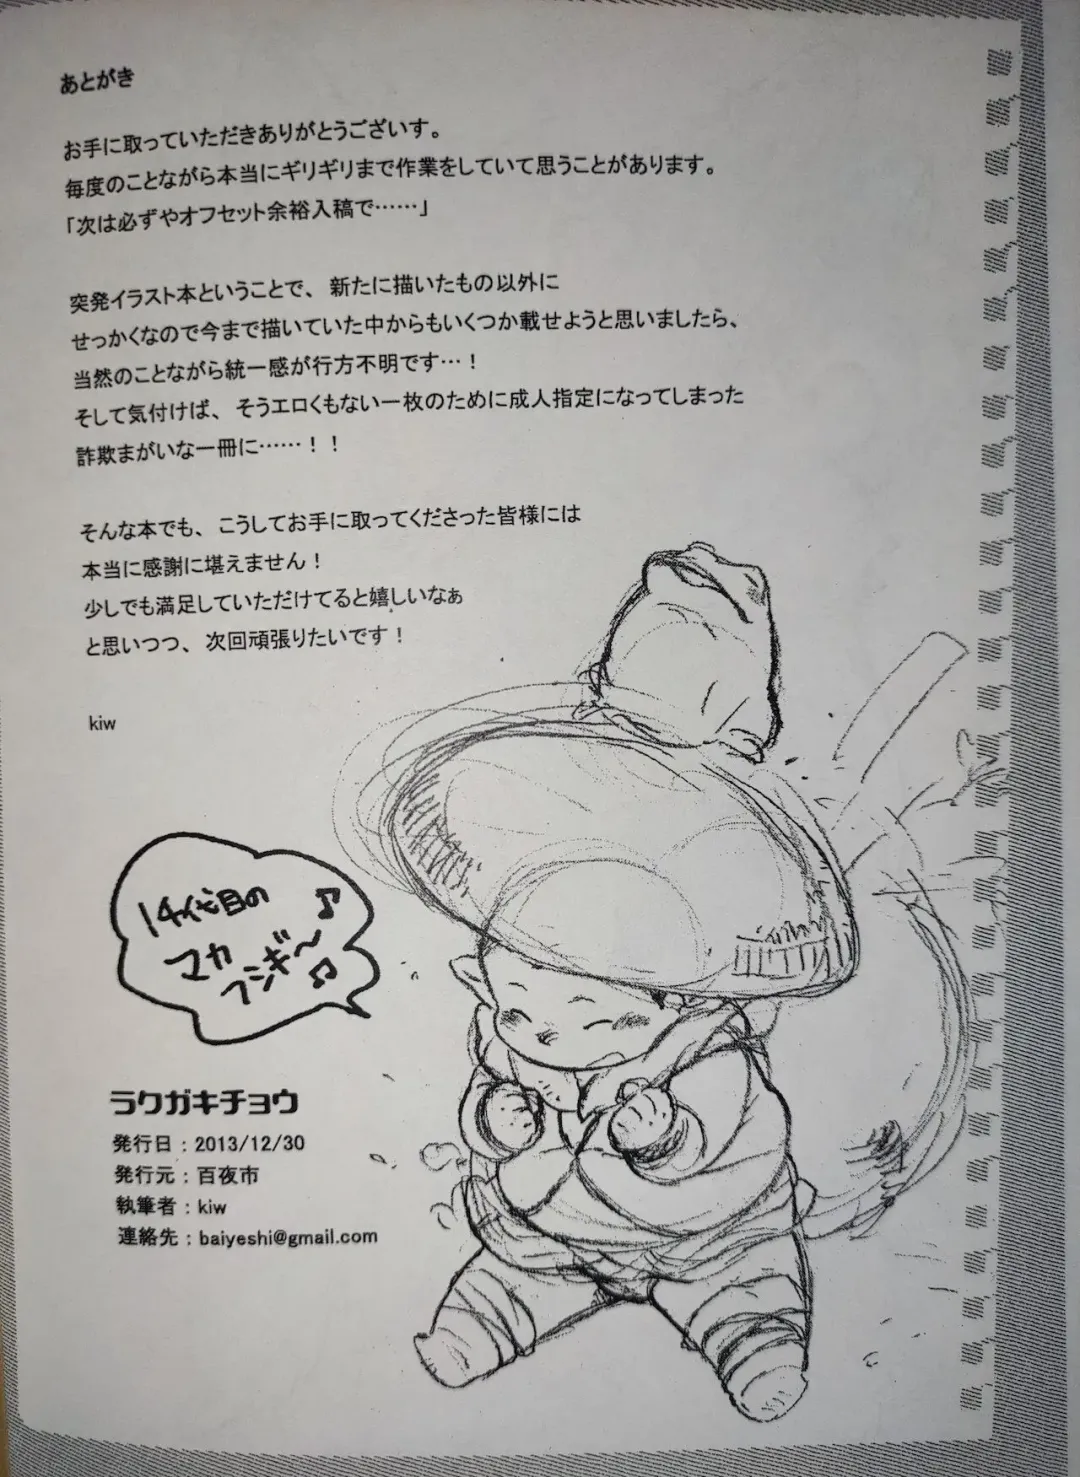 あとがき
お手に取っていただきありがとうございす。
毎度のことながら本当にギリギリまで作業をしていて思うことがあります。
「次は必ずやオフセット余裕入稿で……」
突発イラスト本ということで、新たに描いたもの以外に
せっかくなので今まで描いていた中からもいくつか載せようと思いましたら、
当然のことながら統一感が行方不明です…！
そして気付けば、そうエロくもない一枚のために成人指定になってしまった
詐欺まがいな一冊に……！！
そんな本でも、こうしてお手に取ってくださった皆様には
本当に感謝に堪えません！
少しでも満足していただけてると嬉しいなぁ
と思いつつ、次回頑張りたいです！
kiw
14代目の♪
マカ
フシギ〜♫
ラクガキチョウ
発行日：2013/12/30
発行元：百夜市
執筆者：kiw
連絡先：baiyeshi@gmail.com